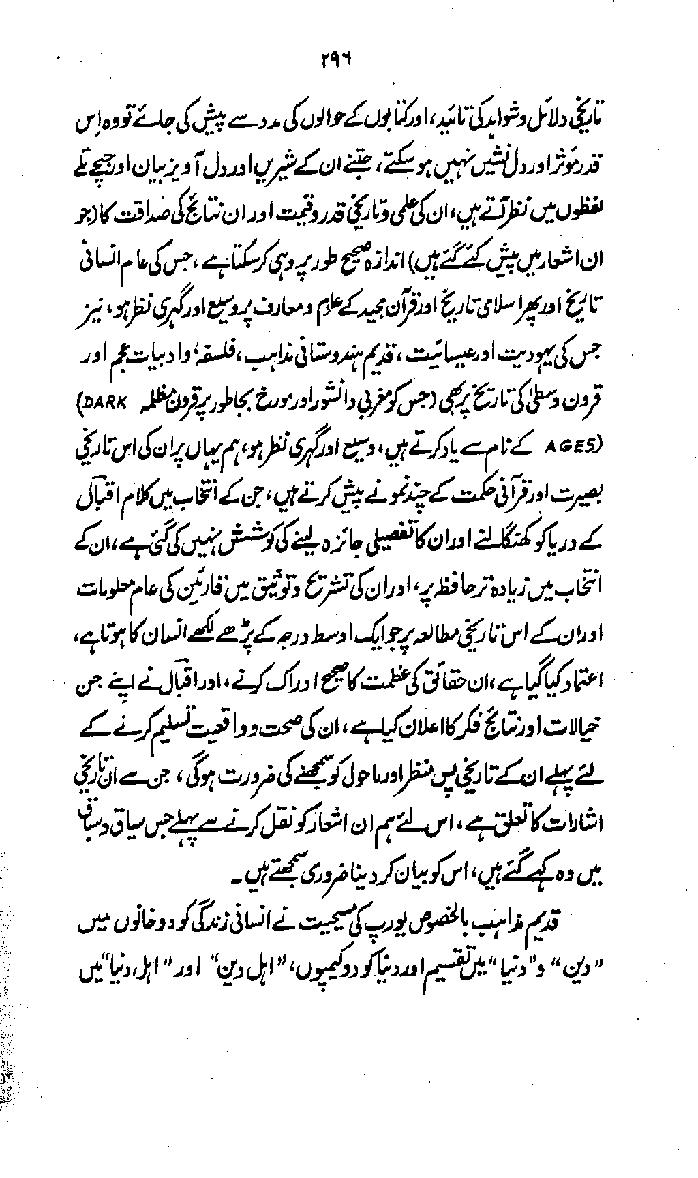 ۲۹۶
تاریخی دلائل و شواہد کی تائید، اور کتابوں کے حوالوں کی مدد سے پیش کی جائے تو وہ اس
قدر موثر اور دل نشیں نہیں ہو سکتے، جتنے ان کے شیریں اور دل آویز بیان اور جچے تلے
لفظوں میں نظر آتے ہیں، ان کی علمی و تاریخی قدر و قیمت اور ان نتائج کی صداقت کا (جو
ان اشعار میں پیش کئے گئے ہیں) اندازہ صحیح طور پر وہی کر سکتا ہے، جس کی عام انسانی
تاریخ اور پھر اسلامی تاریخ اور قرآن مجید کے علوم و معارف پر وسیع اور گہری نظر ہو، نیز
جس کی یہودیت اور عیسائیت، قدیم ہندوستانی مذاہب، فلسفۂ و ادبیات عجم اور
قرون وسطیٰ کی تاریخ پر بھی (جس کو مغربی دانشور اور مورخ بجا طور پر قرون مظلمہ DARK)
(AGES کے نام سے یاد کرتے ہیں، وسیع اور گہری نظر ہو، ہم یہاں پر ان کی اس تاریخی
بصیرت اور قرآنی حکمت کے چند نمونے پیش کرتے ہیں، جن کے انتخاب میں کلام اقبالؔ
کے دریا کو کھنگالنے اور ان کا تفصیلی جائزہ لینے کی کوشش نہیں کی گئی ہے، ان کے
انتخاب میں زیادہ تر حافظہ پر، اور ان کی تشریح و توثیق میں قارئین کی عام معلومات
اور ان کے اس تاریخی مطالعہ پر جو ایک اوسط درجہ کے پڑھے لکھے انسان کا ہوتا ہے،
اعتماد کیا گیا ہے، ان حقائق کی عظمت کا صحیح ادراک کرنے، اور اقبالؔ نے اپنے جن
خیالات اور نتائج فکر کا اعلان کیا ہے، ان کی صحت و واقعیت تسلیم کرنے کے
لئے پہلے ان کے تاریخی پس منظر اور ماحول کو سمجھنے کی ضرورت ہوگی، جن سے ان تاریخی
اشارات کا تعلق ہے، اس لئے ہم ان اشعار کو نقل کرنے سے پہلے جس سیاق و سباق
میں وہ کہے گئے ہیں، اس کو بیان کر دینا ضروری سمجھتے ہیں۔
قدیم مذاہب بالخصوص یورپ کی مسیحیت نے انسانی زندگی کو دو خانوں میں
"دین" و "دنیا" میں تقسیم اور دنیا کو دو کیمپوں، "اہل دین" اور "اہل دنیا" میں